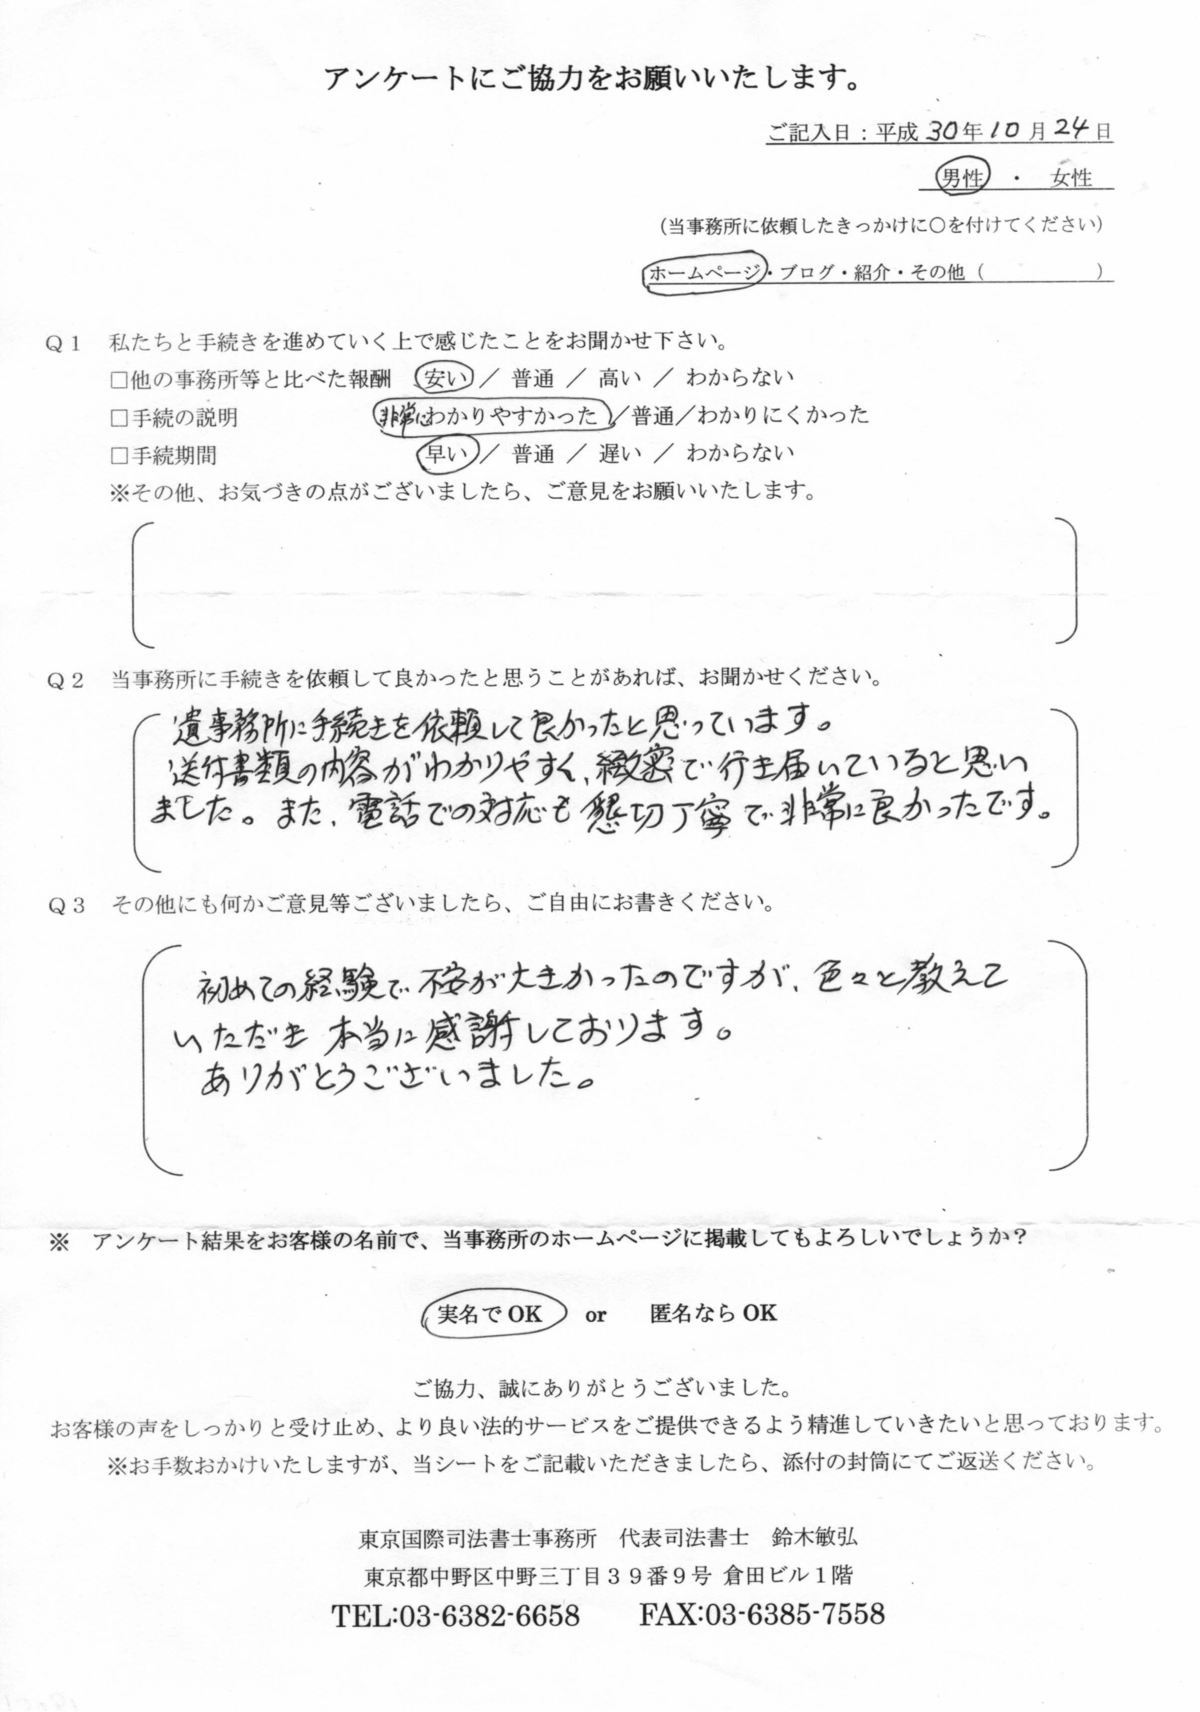 アンケートにご協力をお願いいたします。
ご記入日：平成30年10月24日
男性 ・ 女性
（当事務所に依頼したきっかけに○を付けてください）
ホームページ・ブログ・紹介・その他（　　　　　）
Ｑ１　私たちと手続きを進めていく上で感じたことをお聞かせ下さい。
□他の事務所等と比べた報酬　安い ／ 普通 ／ 高い ／ わからない
□手続の説明　非常にわかりやすかった ／普通／わかりにくかった
□手続期間　早い ／ 普通 ／ 遅い ／ わからない
※その他、お気づきの点がございましたら、ご意見をお願いいたします。
Ｑ２　当事務所に手続きを依頼して良かったと思うことがあれば、お聞かせください。
事務所に手続きを依頼して良かったと思っています。
送付書類の内容がわかりやすく、緻密で行き届いていると思い
ました。また、電話での対応も懇切丁寧で非常に良かったです。
Ｑ３　その他にも何かご意見等ございましたら、ご自由にお書きください。
初めての経験で不安が大きかったのですが、色々と教えて
いただき本当に感謝しております。
ありがとうございました。
※　アンケート結果をお客様の名前で、当事務所のホームページに掲載してもよろしいでしょうか？
実名で OK　or　匿名なら OK
ご協力、誠にありがとうございました。
お客様の声をしっかりと受け止め、より良い法的サービスをご提供できるよう精進していきたいと思っております。
※お手数おかけいたしますが、当シートをご記載いただきましたら、添付の封筒にてご返送ください。
東京国際司法書士事務所　代表司法書士　鈴木敏弘
東京都中野区中野三丁目３９番９号 倉田ビル１階
TEL:03-6382-6658　FAX:03-6385-7558